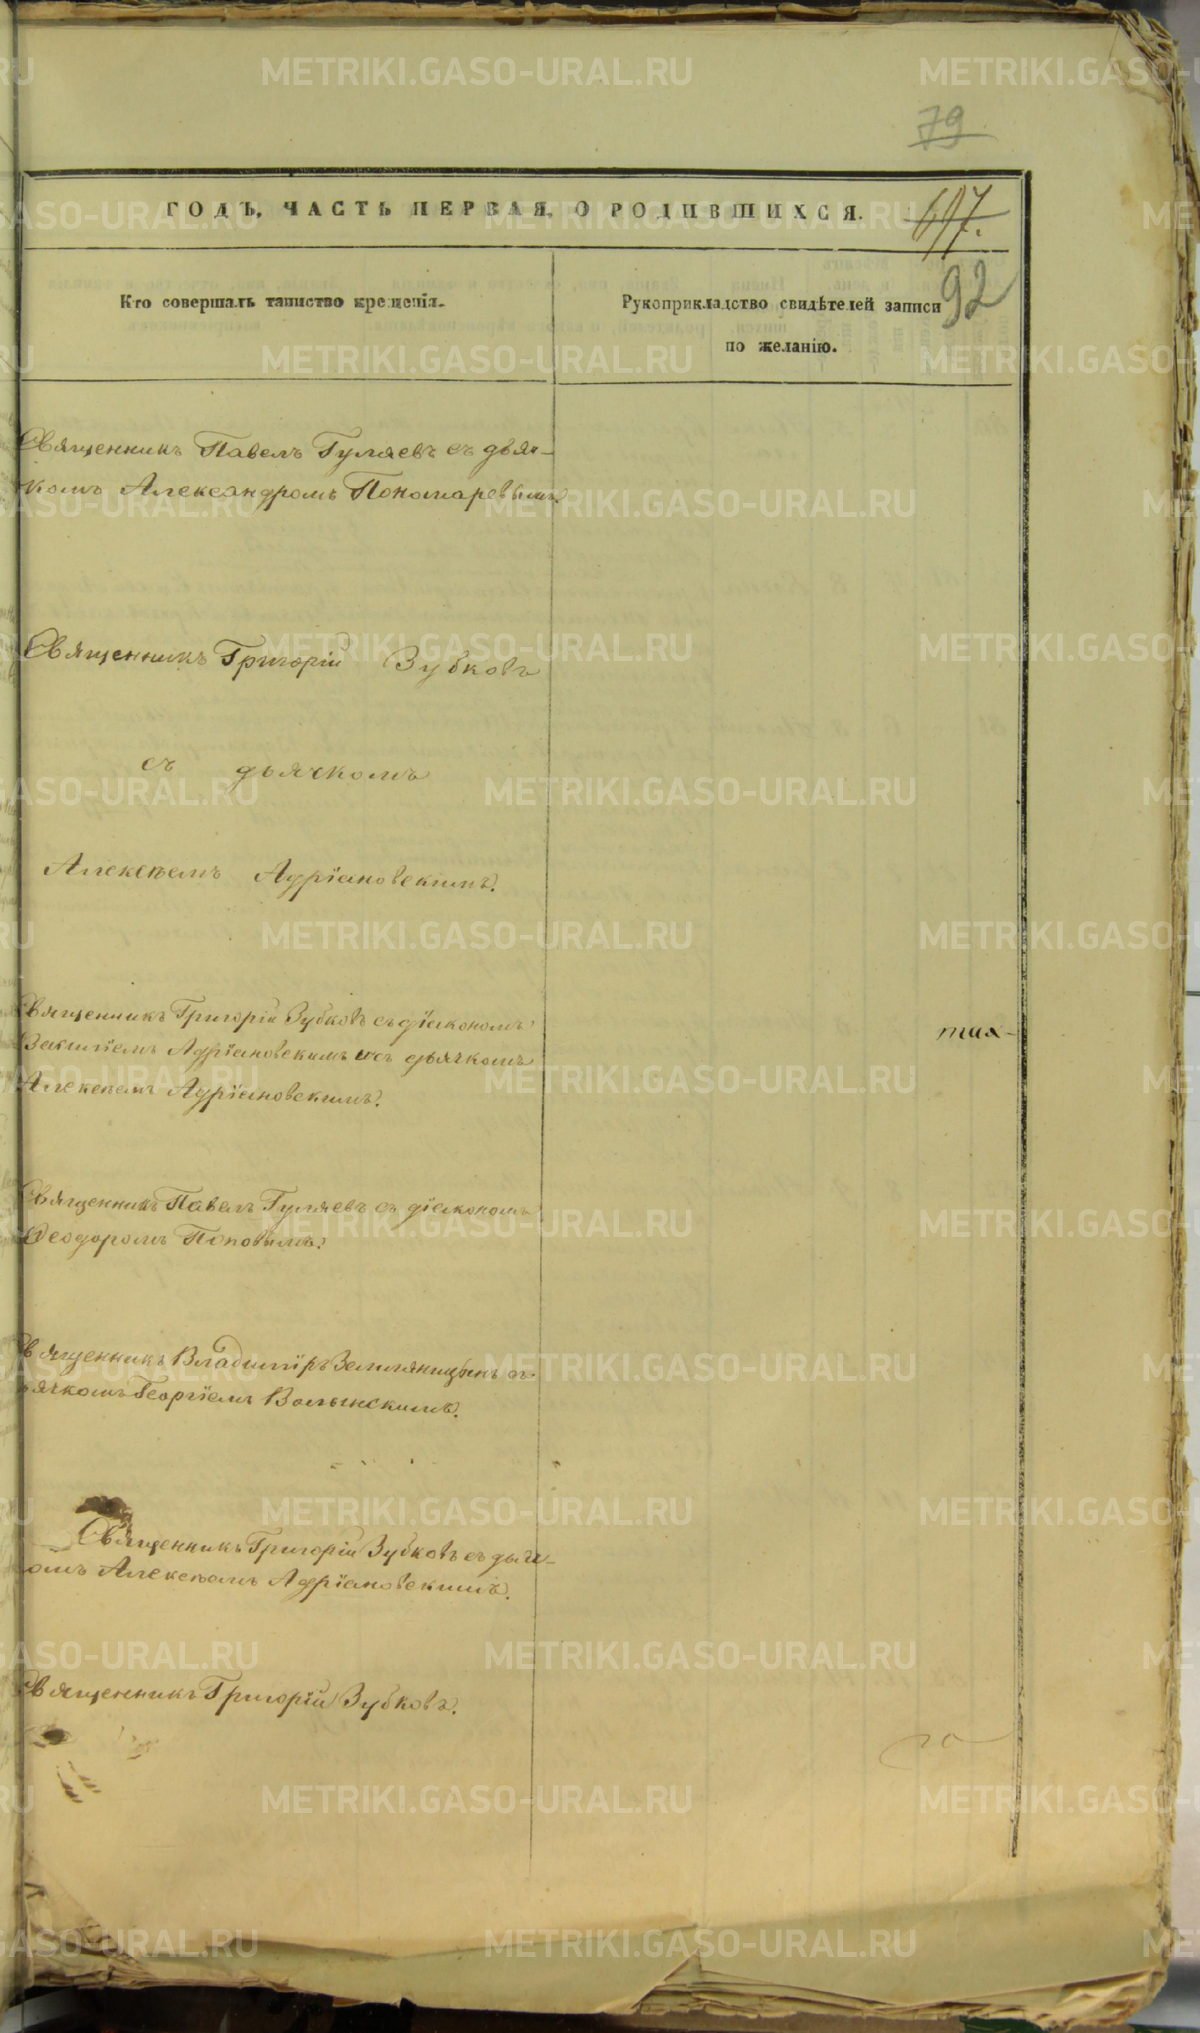 79
ГОДЪ, ЧАСТЬ ПЕРВАЯ, О РОДИВШИХСЯ.
92
Кто совершалъ таинство крещенія.
Рукоприкладство свидѣтелей записи
по желанію.
Священникъ Павелъ Гуляевъ съ дьяч-
комъ Александромъ Пономаревымъ.
Священникъ Григорій Зубковъ
съ дьячкомъ
Алексѣемъ Адріановскимъ.
Священникъ Григорій Зубковъ съ діакономъ
Василіемъ Адріановскимъ и съ дьячкомъ
Алексѣемъ Адріановскимъ.
тих-
Священникъ Павелъ Гуляевъ съ діакономъ
Ѳеодоромъ Поповымъ.
Священникъ Владиміръ Земляницынъ съ
дьячкомъ Георгіемъ Волынскимъ.
Священникъ Григорій Зубковъ съ дьяч-
комъ Алексѣемъ Адріановскимъ.
Священникъ Григорій Зубковъ.
METRIKI.GASO-URAL.RU